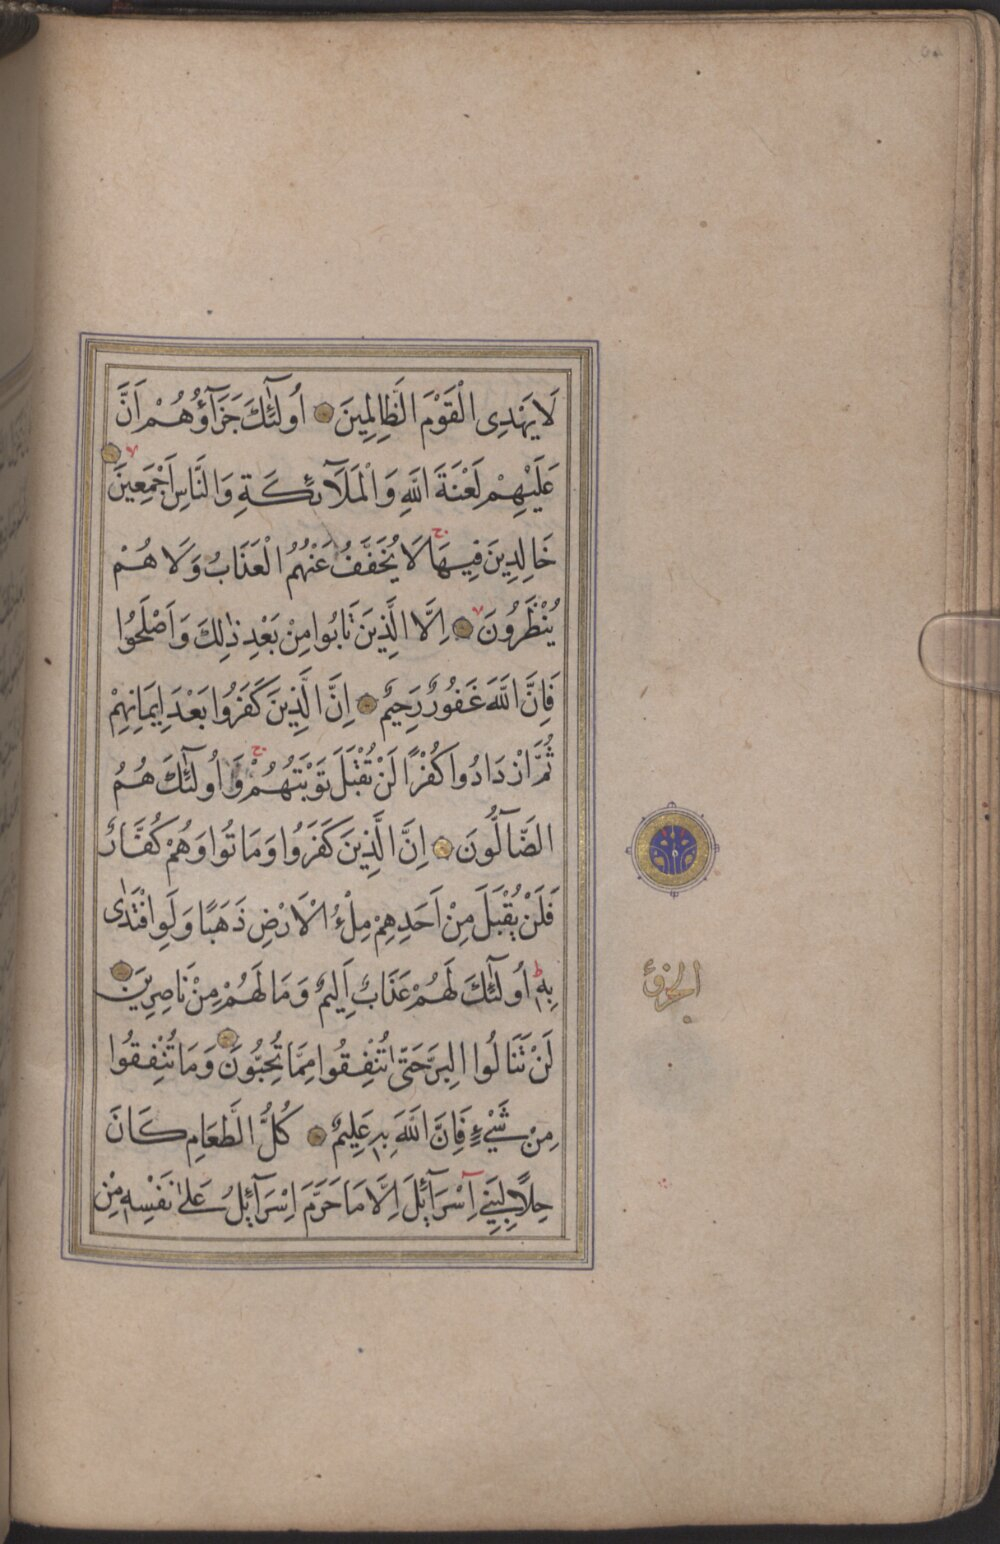 لَا يَهْدِى الْقَوْمَ الظَّالِمِينَ اُولٰٓئِكَ جَزَآؤُهُمْ اَنَّ
عَلَيْهِمْ لَعْنَةَ اللّٰهِ وَالْمَلَآئِكَةِ وَالنَّاسِ اَجْمَعِينَ
خَالِدِينَ فِيهَا لَا يُخَفَّفُ عَنْهُمُ الْعَذَابُ وَلَا هُمْ
يُنْظَرُونَ اِلَّا الَّذِينَ تَابُوا مِنْ بَعْدِ ذٰلِكَ وَاَصْلَحُوا
فَاِنَّ اللّٰهَ غَفُورٌ رَحِيمٌ اِنَّ الَّذِينَ كَفَرُوا بَعْدَ اِيمَانِهِمْ
ثُمَّ ازْدَادُوا كُفْرًا لَنْ تُقْبَلَ تَوْبَتُهُمْ وَاُولٰٓئِكَ هُمُ
الضَّآلُّونَ اِنَّ الَّذِينَ كَفَرُوا وَمَاتُوا وَهُمْ كُفَّارٌ
فَلَنْ يُقْبَلَ مِنْ اَحَدِهِمْ مِلْءُ الْاَرْضِ ذَهَبًا وَلَوِ افْتَدٰى
بِهِ اُولٰٓئِكَ لَهُمْ عَذَابٌ اَلِيمٌ وَمَا لَهُمْ مِنْ نَاصِرِينَ
لَنْ تَنَالُوا الْبِرَّ حَتّٰى تُنْفِقُوا مِمَّا تُحِبُّونَ وَمَا تُنْفِقُوا
مِنْ شَىْءٍ فَاِنَّ اللّٰهَ بِهِ عَلِيمٌ كُلُّ الطَّعَامِ كَانَ
حِلًّا لِبَنِى اِسْرَآئِلَ اِلَّا مَا حَرَّمَ اِسْرَآئِلُ عَلٰى نَفْسِهِ مِنْ
الجزؤ